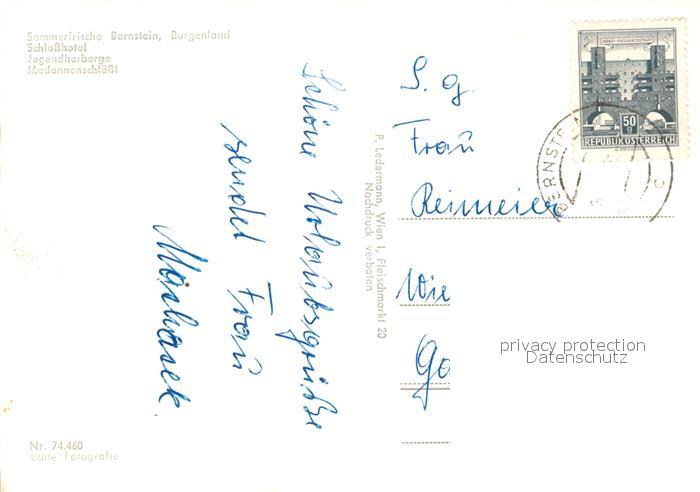 Sommerfrische Bernstein, Burgenland
Schloßhotel
Jugendherberge
Madonnenschlößl
Schöne Urlaubsgrüße
sendet Frau
P. Ledermann, Wien I, Fleischmarkt 20
Nachdruck verboten
S. g.
Frau
Reimeier
Wie
Go
50 g
REPUBLIK ÖSTERREICH
BERNST
privacy protection
Datenschutz
Nr. 74.460
Echte Fotografie